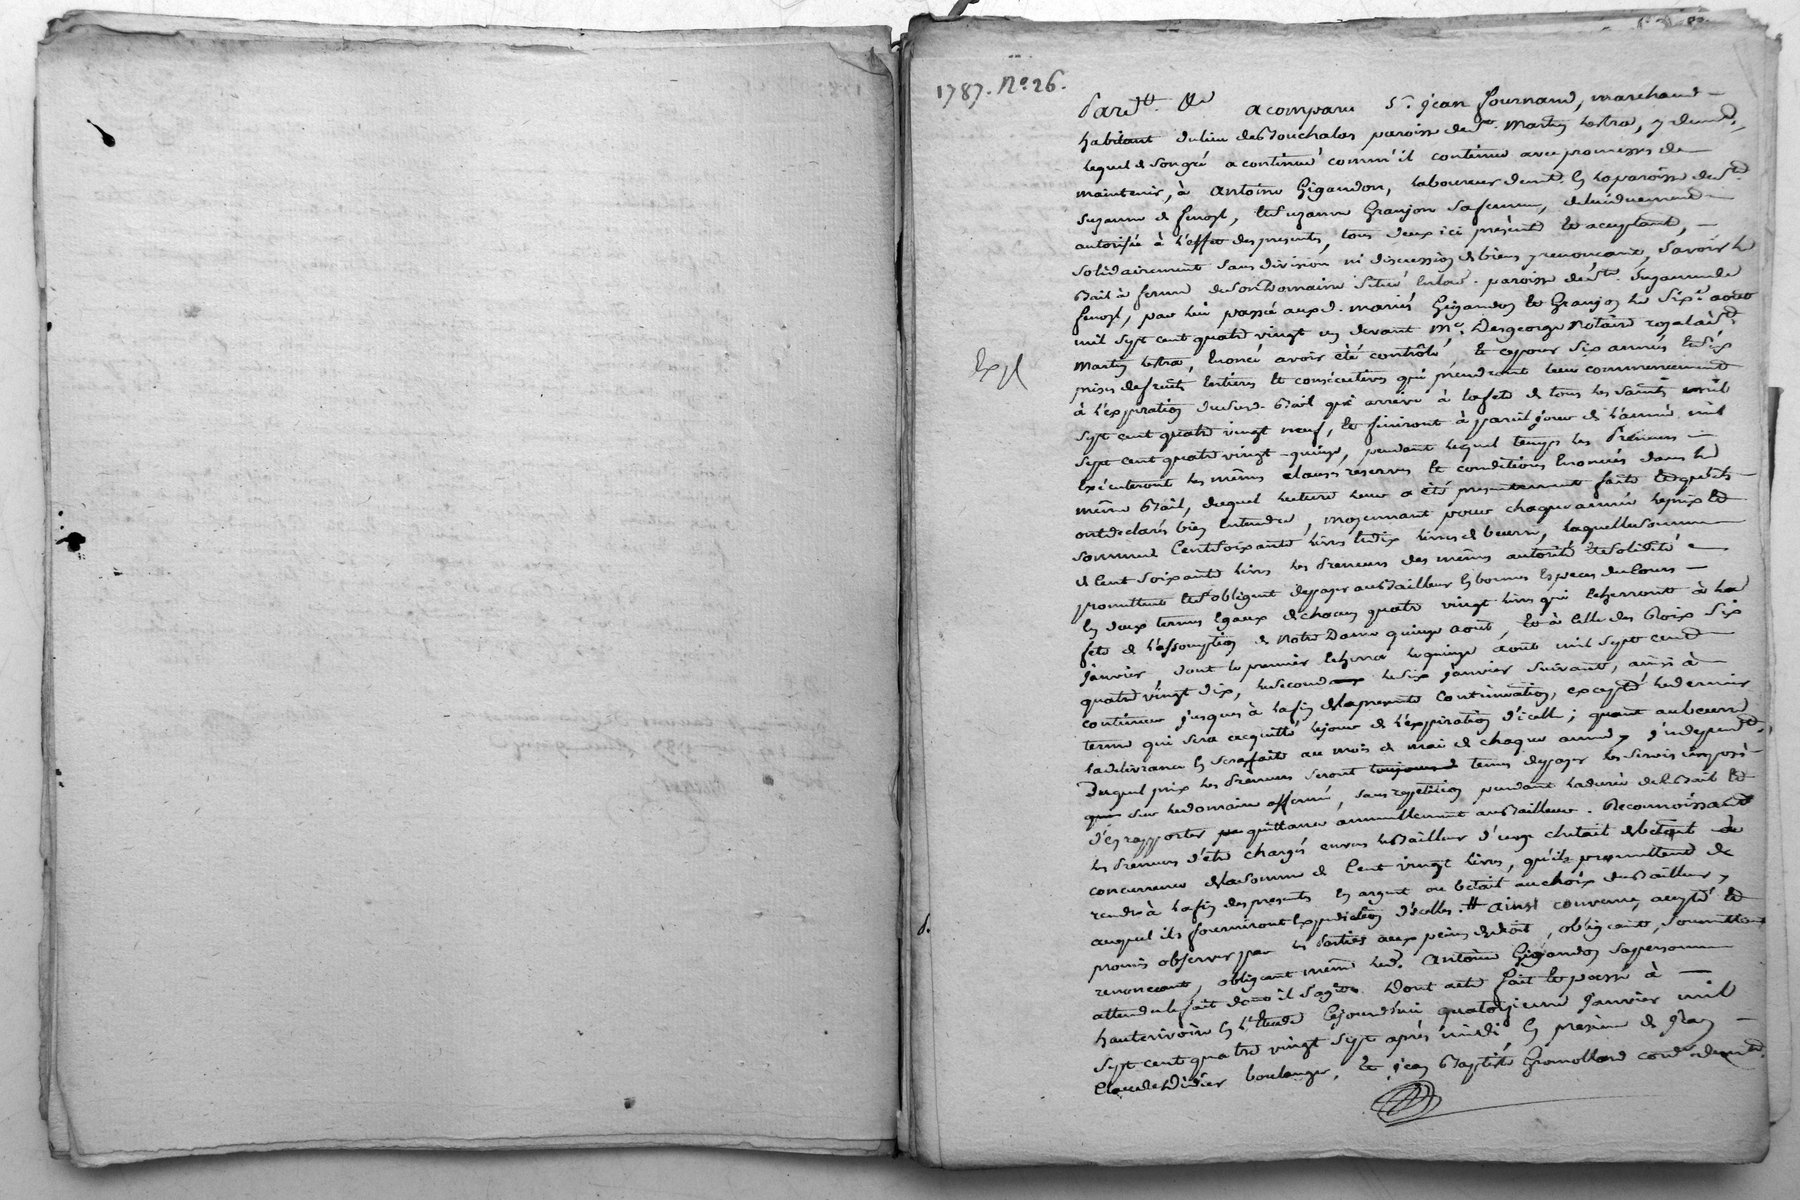 1787. N.o 26.
Pard.t &a a comparu S.r jean fournand, marchand
habitant du lieu des Bouchalas paroisse de S.t Martin Lestra, y demt.
lequel de son gré a continué comm'il continue avec promesses de
maintenir, à Antoine Gigandon, laboureur demt. en la paroisse de S.te
Suzanne de fenoyl, et Suzanne Granjon sa femme, de lui duement
autorisée à l'effet des presentes, tous deux ici présents et acceptant,
solidairement sans division ni discussion de biens y renonçant, savoir le
Bail à ferme du son Domaine situé en lad. paroisse de S.te Suzanne de
fenoyl, par lui passé auxd. mariés Gigandon et Granjon le six.e août
mil sept cent quatre vingt un devant M.e Desgeorge Notaire royal à S.t
Martin Lestra, enoncé avoir été contrôlé, et ce pour six années et six
Exp
prises de fruits entieres et consécutives qui prendront leur commencement
à l'expiration du susd. Bail qui arrive à la fete de tous les Saints mil
sept cent quatre vingt neuf, et finiront à pareil jour de l'année mil
sept cent quatre vingt quinze, pendant lequel temps les Preneurs
exécuteront les mêmes clauses reserves et conditions enoncées dans le
même Bail, duquel lecture leur a été presentement faite et qu'ils
ont declarés bien entendre, moyennant pour chaque année le prix et
somme de Cent soixante livres et dix livres de beurre, laquelle somme
de Cent soixante livres les Preneurs des mêmes autorité et solidité
promettent et s'obligent de payer au Bailleur en bonnes especes du Cours
en deux termes egaux de chacun quatre vingt livres qui echerront à la
fete de l'assomption de Notre Dame quinze août, et à celle des Roix six
janvier, dont le premier echerra le quinze août mil sept cent
quatre vingt dix, le second le six janvier suivant, ainsi à
continuer jusques à la fin de la presente continuation, excepté le dernier
terme qui sera acquitté le jour de l'expiration d'icelle; quant au beurre
la delivrance en sera faite au mois de mai de chaque année, j independt.
Duquel prix les Preneurs seront toujours tenus de payer les servis imposés
sur le domaine affermé, sans repetition pendant la durée de ce Bail et
d'en rapporter quittance annuellement au Bailleur. Reconnoissant
les Preneurs d'etre chargés envers le Bailleur d'un chetail de betail de
concurrence de la somme de Cent vingt livres, qu'ils promettent de
rendre à la fin des presentes en argent ou betail au choix du Bailleur,
auquel ils fourniront expedition d'icelles. # Ainsi convenu accepté et
promis observer par les Parties aux peines de droit, obligeant, soumettant
renonceant, obligeant même led. Antoine Gigandon sa personne
attendu le fait dont il s'agit. Dont acte fait et passé à
hauterivoire en l'Etude Cejourd'hui quatorzieme janvier mil
sept cent quatre vingt sept après midi en presence de Jean
Claude Didier boulanger, et jean Baptiste Gromollard cord. demt.